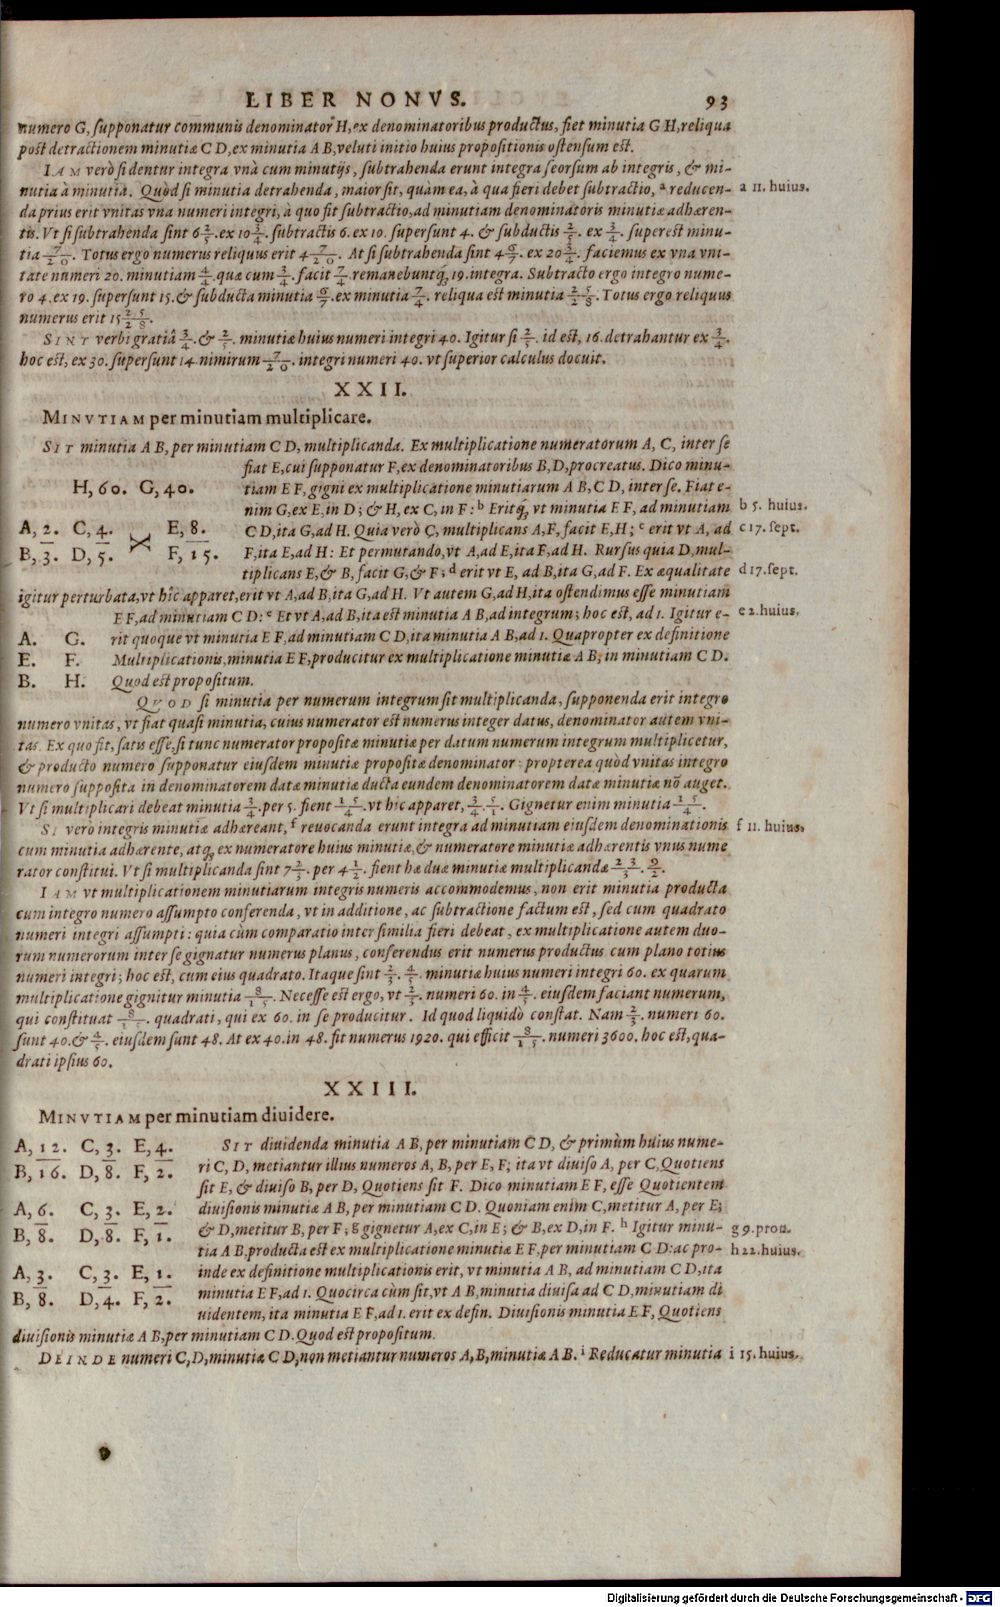 LIBER NONVS. 93
numero G, supponatur communis denominator H, ex denominatoribus productus, fiet minutia G H, reliqua
post detractionem minutiæ C D, ex minutia A B, veluti initio huius propositionis ostensum est.
IAM verò si dentur integra vnà cum minutijs, subtrahenda erunt integra seorsum ab integris, & mi-
nutia à minutia. Quòd si minutia detrahenda, maior sit, quàm ea, à qua fieri debet subtractio, ª reducen- a 11. huius.
da prius erit vnitas vna numeri integri, à quo fit subtractio, ad minutiam denominatoris minutiæ adhæren-
tis. Vt si subtrahenda sint 6 2/5. ex 10 3/4. subtractis 6. ex 10. supersunt 4. & subductis 2/5. ex 3/4. superest minu-
tia 7/20. Totus ergo numerus reliquus erit 4 7/20. At si subtrahenda sint 4 6/7. ex 20 3/4. faciemus ex vna vni-
tate numeri 20. minutiam 4/4. quæ cum 3/4. facit 7/4. remanebuntq́; 19. integra. Subtracto ergo integro nume-
ro 4. ex 19. supersunt 15. & subducta minutia 6/7. ex minutia 7/4. reliqua est minutia 25/28. Totus ergo reliquus
numerus erit 15 25/28.
SINT verbi gratiâ 3/4. & 2/5. minutiæ huius numeri integri 40. Igitur si 2/5. id est, 16. detrahantur ex 3/4.
hoc est, ex 30. supersunt 14. nimirum 7/20. integri numeri 40. vt superior calculus docuit.
XXII.
MINVTIAM per minutiam multiplicare.
SIT minutia A B, per minutiam C D, multiplicanda. Ex multiplicatione numeratorum A, C, inter se
fiat E, cui supponatur F, ex denominatoribus B, D, procreatus. Dico minu-
H, 60. G, 40. tiam E F, gigni ex multiplicatione minutiarum A B, C D, inter se. Fiat e-
nim G, ex E, in D; & H, ex C, in F: ᵇ Eritq́; vt minutia E F, ad minutiam b 5. huius.
A, 2. C, 4. E, 8. C D, ita G, ad H. Quia verò C, multiplicans A, F, facit E, H; ᶜ erit vt A, ad c 17. sept.
B, 3. D, 5. F, 15. F, ita E, ad H: Et permutando, vt A, ad E, ita F, ad H. Rursus quia D, mul-
tiplicans E, & B, facit G, & F; ᵈ erit vt E, ad B, ita G, ad F. Ex æqualitate d 17. sept.
igitur perturbata, vt hîc apparet, erit vt A, ad B, ita G, ad H. Vt autem G, ad H, ita ostendimus esse minutiam
E F, ad minutiam C D: ᵉ Et vt A, ad B, ita est minutia A B, ad integrum; hoc est, ad 1. Igitur e- e 2. huius.
A. G. rit quoque vt minutia E F, ad minutiam C D, ita minutia A B, ad 1. Quapropter ex definitione
E. F. Multiplicationis, minutia E F, producitur ex multiplicatione minutiæ A B, in minutiam C D.
B. H. Quod est propositum.
QVOD si minutia per numerum integrum sit multiplicanda, supponenda erit integro
numero vnitas, vt fiat quasi minutia, cuius numerator est numerus integer datus, denominator autem vni-
tas. Ex quo fit, satis esse, si tunc numerator propositæ minutiæ per datum numerum integrum multiplicetur,
& producto numero supponatur eiusdem minutiæ propositæ denominator: propterea quòd vnitas integro
numero supposita in denominatorem datæ minutiæ ducta eundem denominatorem datæ minutiæ nõ auget.
Vt si multiplicari debeat minutia 3/4. per 5. fient 15/4. vt hîc apparet, 3/4. 5/1. Gignetur enim minutia 15/4.
SI verò integris minutiæ adhæreant, ᶠ reuocanda erunt integra ad minutiam eiusdem denominationis f 11. huius,
cum minutia adhærente, atq́; ex numeratore huius minutiæ, & numeratore minutiæ adhærentis vnus nume
rator constitui. Vt si multiplicanda sint 7 2/3. per 4 1/2. fient hæ duæ minutiæ multiplicandæ 23/3. 9/2.
IAM vt multiplicationem minutiarum integris numeris accommodemus, non erit minutia producta
cum integro numero assumpto conferenda, vt in additione, ac subtractione factum est, sed cum quadrato
numeri integri assumpti: quia cùm comparatio inter similia fieri debeat, ex multiplicatione autem duo-
rum numerorum inter se gignatur numerus planus, conferendus erit numerus productus cum plano totius
numeri integri; hoc est, cum eius quadrato. Itaque sint 2/3. 4/5. minutiæ huius numeri integri 60. ex quarum
multiplicatione gignitur minutia 8/15. Necesse est ergo, vt 2/3. numeri 60. in 4/5. eiusdem faciant numerum,
qui constituat 8/15. quadrati, qui ex 60. in se producitur. Id quod liquidò constat. Nam 2/3. numeri 60.
sunt 40. & 4/5. eiusdem sunt 48. At ex 40. in 48. fit numerus 1920. qui efficit 8/15. numeri 3600. hoc est, qua-
drati ipsius 60.
XXIII.
MINVTIAM per minutiam diuidere.
A, 12. C, 3. E, 4. SIT diuidenda minutia A B, per minutiam C D, & primùm huius nume-
B, 16. D, 8. F, 2. ri C, D, metiantur illius numeros A, B, per E, F; ita vt diuiso A, per C, Quotiens
sit E, & diuiso B, per D, Quotiens sit F. Dico minutiam E F, esse Quotientem
A, 6. C, 3. E, 2. diuisionis minutiæ A B, per minutiam C D. Quoniam enim C, metitur A, per E;
B, 8. D, 8. F, 1. & D, metitur B, per F; ᵍ gignetur A, ex C, in E; & B, ex D, in F. ʰ Igitur minu- g 9. pron.
tia A B, producta est ex multiplicatione minutiæ E F, per minutiam C D: ac pro- h 22. huius.
A, 3. C, 3. E, 1. inde ex definitione multiplicationis erit, vt minutia A B, ad minutiam C D, ita
B, 8. D, 4. F, 2. minutia E F, ad 1. Quocirca cùm sit, vt A B, minutia diuisa ad C D, minutiam di
uidentem, ita minutia E F, ad 1. erit ex defin. Diuisionis minutia E F, Quotiens
diuisionis minutiæ A B, per minutiam C D. Quod est propositum.
DEINDE numeri C, D, minutiæ C D, non metiantur numeros A, B, minutiæ A B. ⁱ Reducatur minutia i 15. huius.
Digitalisierung gefördert durch die Deutsche Forschungsgemeinschaft - DFG